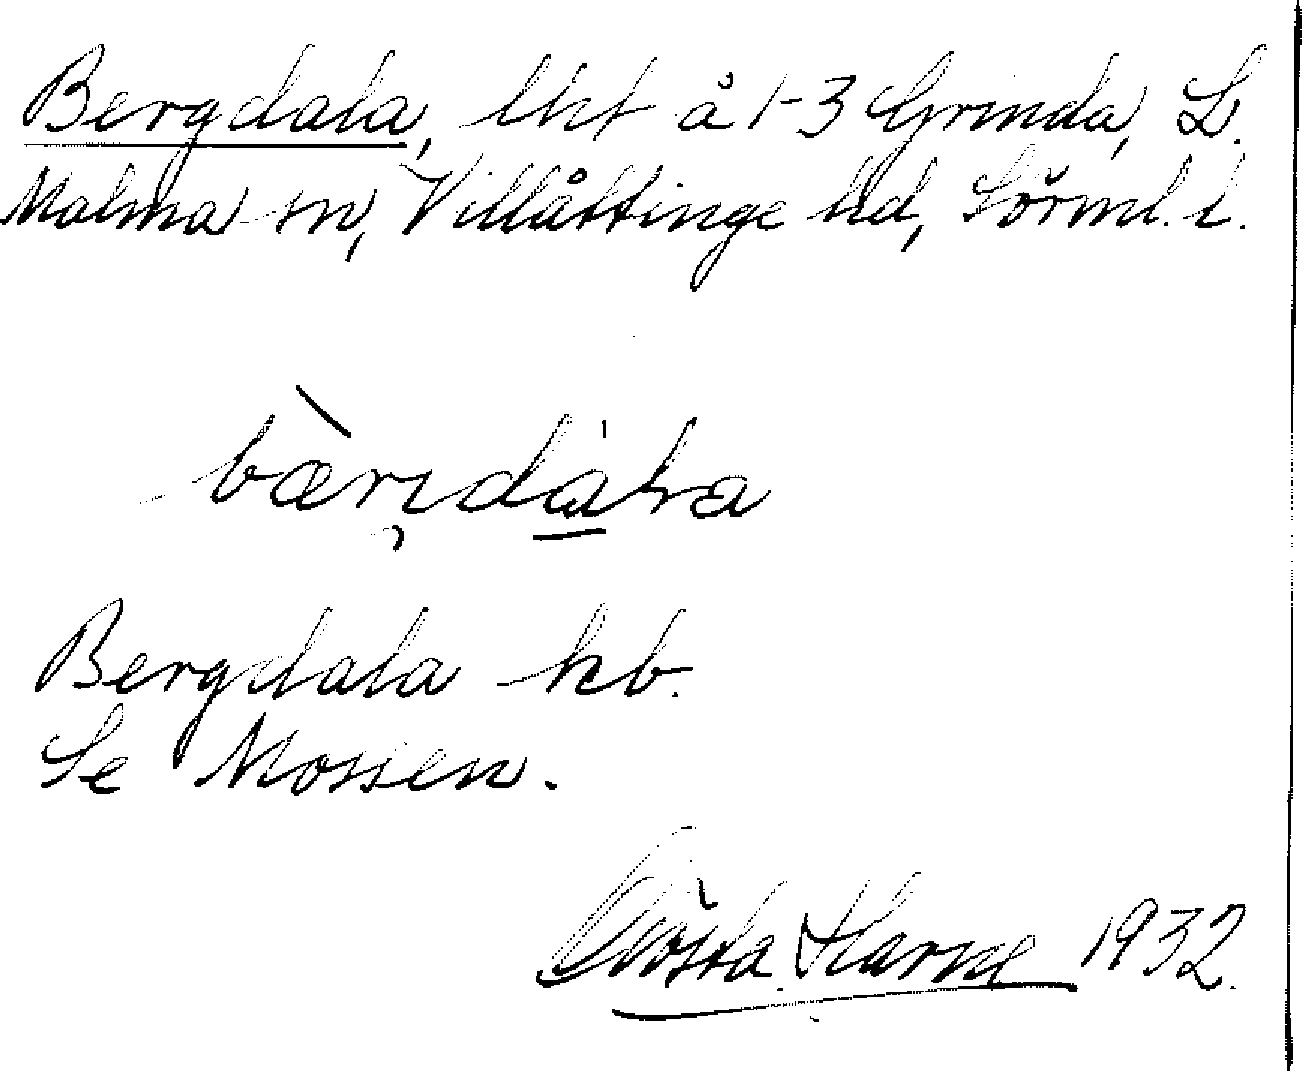 Bergdala, lht å 1-3 Grinda, L.
Malma sn, Villåttinge hd, Sörml. l.
bæ̀rɪdȧ̱la
Bergdala hb.
Se Mossen.
Gösta Harne 1932.